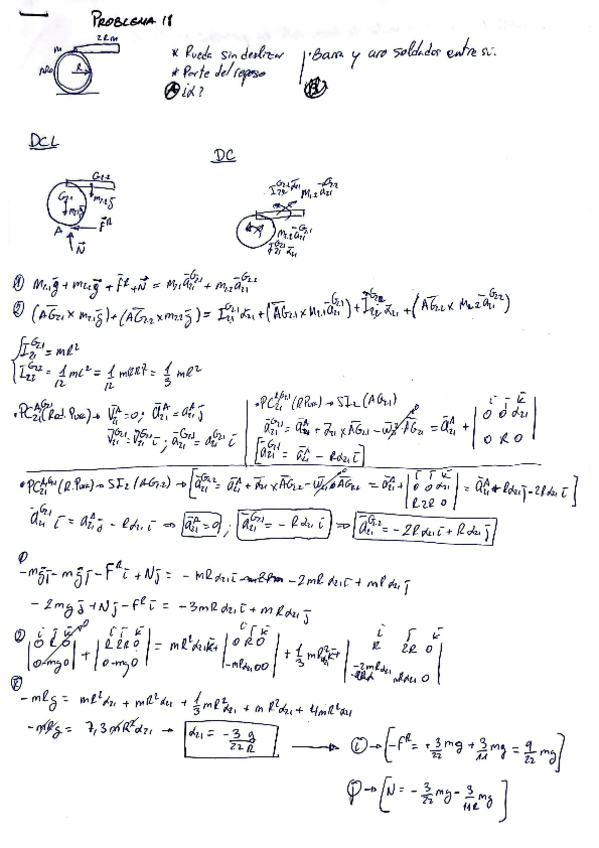 PROBLEMA 18
2R m
M
R
* Rueda sin deslizar
* Parte del reposo
(A) ¿α?
· Barra y aro soldados entre sí.
DCL
DC
G₂.₂
G₂.₁
A
F^R
N
① m₂.₁g + m₂.₂g + F^R + N = m₂.₁a₂₁^G₂.₁ + m₂.₂a₂₁^G₂.₂
② (AG₂.₁ × m₂.₁g) + (AG₂.₂ × m₂.₂g) = I₂₁^G₂.₁ α₂₁ + (AG₂.₁ × m₂.₁a₂₁^G₂.₁) + I₂.₂^G₂.₂ α₂₁ + (AG₂.₂ × m₂.₂a₂₁^G₂.₂)
I₂.₁^G₂.₁ = mR²
I₂.₂^G₂.₂ = 1/12 mL² = 1/12 m(2R)² = 1/3 mR²
· PC₂₁^AG₂.₁ (Rod. Pura) → V₂₁^A = 0; a₂₁^A = a₂₁^A j
V₂₁^G₂.₁ = V₂₁^G₂.₁ i; a₂₁^G₂.₁ = a₂₁^G₂.₁ i
· PC₂₁^AG₂.₁ (R Pura) → SI₂ (AG₂.₁)
a₂₁^G₂.₁ = a₂₁^A + α₂₁ × AG₂.₁ - ω₂₁² AG₂.₁ = a₂₁^A + | i j k | 0 0 α₂₁ | 0 R 0 |
[a₂₁^G₂.₁ = a₂₁^A - Rα₂₁ i]
· PC₂₁^AG₂.₂ (R. Pura) → SI₂ (AG₂.₂) → [a₂₁^G₂.₂ = a₂₁^A + α₂₁ × AG₂.₂ - ω₂₁² AG₂.₂ = a₂₁^A + | i j k | 0 0 α₂₁ | R 2R 0 | = a₂₁^A + Rα₂₁ j - 2Rα₂₁ i]
a₂₁^G₂.₁ i = a₂₁^A j - Rα₂₁ i ⇒ a₂₁^A = 0; a₂₁^G₂.₁ = -Rα₂₁ i ⇒ a₂₁^G₂.₂ = -2Rα₂₁ i + Rα₂₁ j
①
-mgj - mgj - F^R i + Nj = -mRα₂₁ i - 2mRα₂₁ i + mRα₂₁ j
-2mgj + Nj - F^R i = -3mRα₂₁ i + mRα₂₁ j
② | i j k | 0 R 0 | 0 -mg 0 | + | i j k | R 2R 0 | 0 -mg 0 | = mR²α₂₁ k + | i j k | 0 R 0 | -mRα₂₁ 0 0 | + 1/3 mR²α₂₁ k + | i j k | R 2R 0 | -2mRα₂₁ mRα₂₁ 0 |
(k)
-mRg = mR²α₂₁ + mR²α₂₁ + 1/3 mR²α₂₁ + mR²α₂₁ + 4mR²α₂₁
-mRg = 7,3mR²α₂₁ → α₂₁ = -3/22 g/R → (i) → [-F^R = +3/22 mg + 3/11 mg = 9/22 mg]
(j) → [N = -3/22 mg - 3/11R mg]